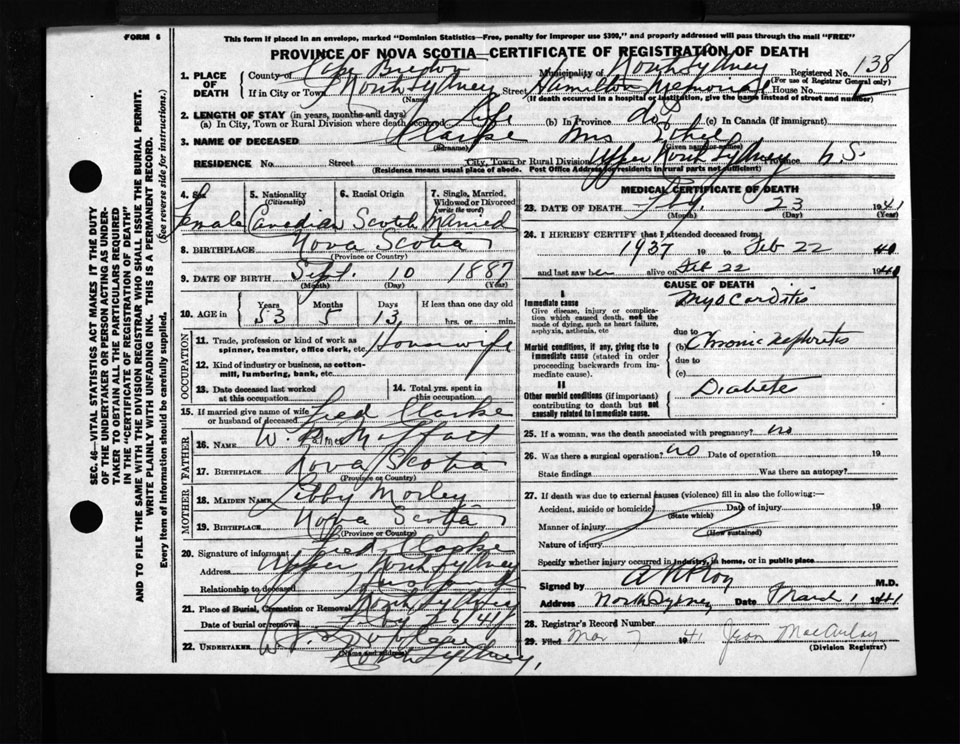 FORM 6
This form if placed in an envelope, marked "Dominion Statistics—Free, penalty for improper use $300," and properly addressed will pass through the mail "FREE"
PROVINCE OF NOVA SCOTIA—CERTIFICATE OF REGISTRATION OF DEATH
1. PLACE OF DEATH
County of Cape Breton Municipality of North Sydney Registered No. 138
(For use of Registrar General only)
If in City or Town North Sydney Street Hamilton Memorial House No.
(Name) (If death occurred in a hospital or institution, give the name instead of street and number)
2. LENGTH OF STAY (in years, months and days)
(a) In City, Town or Rural Division where death occurred Life (b) In Province do (c) In Canada (if immigrant)
3. NAME OF DECEASED Clarke Mrs Ethel
(Surname) (Given name or names)
RESIDENCE No. Street City, Town or Rural Division Upper North Sydney Province N.S.
(Residence means usual place of abode. Post Office Address for residents in rural parts not sufficient)
4. Sex Female
5. Nationality (Citizenship) Canadian
6. Racial Origin Scotch
7. Single, Married, Widowed or Divorced (write the word) Married
8. BIRTHPLACE Nova Scotia
(Province or Country)
9. DATE OF BIRTH Sept. 10 1887
(Month) (Day) (Year)
10. AGE in Years 53 Months 5 Days 13 If less than one day old
hrs. or min.
OCCUPATION
11. Trade, profession or kind of work as spinner, teamster, office clerk, etc. Housewife
12. Kind of industry or business, as cotton-mill, lumbering, bank, etc.
13. Date deceased last worked at this occupation
14. Total yrs. spent in this occupation
15. If married give name of wife or husband of deceased Fred Clarke
FATHER
16. NAME W. Moffatt
17. BIRTHPLACE Nova Scotia
(Province or Country)
MOTHER
18. MAIDEN NAME Libby Morley
19. BIRTHPLACE Nova Scotia
(Province or Country)
20. Signature of informant Fred Clarke
Address Upper North Sydney
Relationship to deceased Husband
21. Place of Burial, Cremation or Removal North Sydney
Date of burial or removal 26/41
22. UNDERTAKER W.
(Name and address) North Sydney.
MEDICAL CERTIFICATE OF DEATH
23. DATE OF DEATH Feby. 23 1941
(Month) (Day) (Year)
24. I HEREBY CERTIFY that I attended deceased from
1937 19 to Feb 22 1940
and last saw her alive on Feb 22 1940
CAUSE OF DEATH
I
Immediate cause
Give disease, injury or complication which caused death, not the mode of dying, such as heart failure, asphyxia, asthenia, etc
Myocarditis
due to
Morbid conditions, if any, giving rise to immediate cause (stated in order proceeding backwards from immediate cause).
(b) Chronic nephritis
due to
(c)
II
Other morbid conditions (if important) contributing to death but not causally related to immediate cause.
Diabetes
25. If a woman, was the death associated with pregnancy? no
26. Was there a surgical operation? no Date of operation 19
State findings Was there an autopsy?
27. If death was due to external causes (violence) fill in also the following:—
Accident, suicide or homicide Date of injury 19
(State which)
Manner of injury
(How sustained)
Nature of injury
Specify whether injury occurred in industry, in home, or in public place
Signed by M.D.
Address North Sydney Date March 1 1941
28. Registrar's Record Number
29. Filed Mar 7 1941 Jean MacAulay
(Division Registrar)
SEC. 46—VITAL STATISTICS ACT MAKES IT THE DUTY
OF THE UNDERTAKER OR PERSON ACTING AS UNDER-
TAKER TO OBTAIN ALL THE PARTICULARS REQUIRED
IN THE "CERTIFICATE OF REGISTRATION OF DEATH"
AND TO FILE THE SAME WITH THE DIVISION REGISTRAR WHO SHALL ISSUE THE BURIAL PERMIT.
WRITE PLAINLY WITH UNFADING INK. THIS IS A PERMANENT RECORD.
Every item of Information should be carefully supplied. (See reverse side for instructions.)